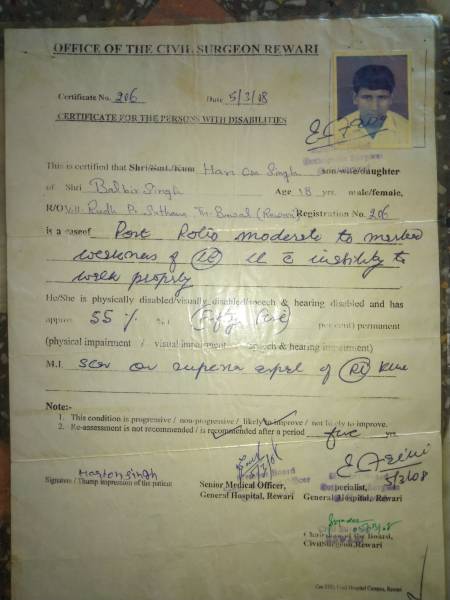 OFFICE OF THE CIVIL SURGEON REWARI
Certificate No. 206 Date 5/3/08
CERTIFICATE FOR THE PERSONS WITH DISABILITIES
This is certified that Shri/Smt./Kum Hari Om Singh son/wife/daughter
of Shri Balbir Singh Age 18 yrs. male/female,
R/O Vill. P. Teh. Bawal (Rewari) Registration No. 206
is a case of Post Polio moderate to marked
weakness of Rt LL c inability to
walk properly
He/She is physically disabled/visually disabled/speech & hearing disabled and has
approx. 55 % ( Fifty five per cent) permanent
(physical impairment / visual impairment / speech & hearing impairment)
M.I. Scar on superior aspect of Rt Knee
Note:-
1. This condition is progressive / non-progressive / likely to improve / not likely to improve.
2. Re-assessment is not recommended / is recommended after a period five yrs
Signature / Thump impression of the patient
Senior Medical Officer,
General Hospital, Rewari
5/3/08
Specialist,
General Hospital, Rewari
Chairman of the Board,
Civil Surgeon, Rewari